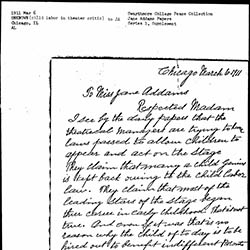 1911 Mar 6
UNKNOWN (child labor in theater critic) to JA
Chicago, IL
AL
Swarthmore College Peace Collection
Jane Addams Papers
Series 1, Supplement
Chicago March 6 1911
To Miss Jane Addams
Respected Madam
I see by the daily papers that the
theatrical managers are trying to have
laws passed to allow children to
appear and act on the stage
They claim that many a child Genius
is kept back owing to the Child Labor
law. They claim that most of the
leading stars of the stage began
their career in early childhood. That is not
true. And even if it was that is no
reason why the child of to day is to be
hired out to benefit indifferent